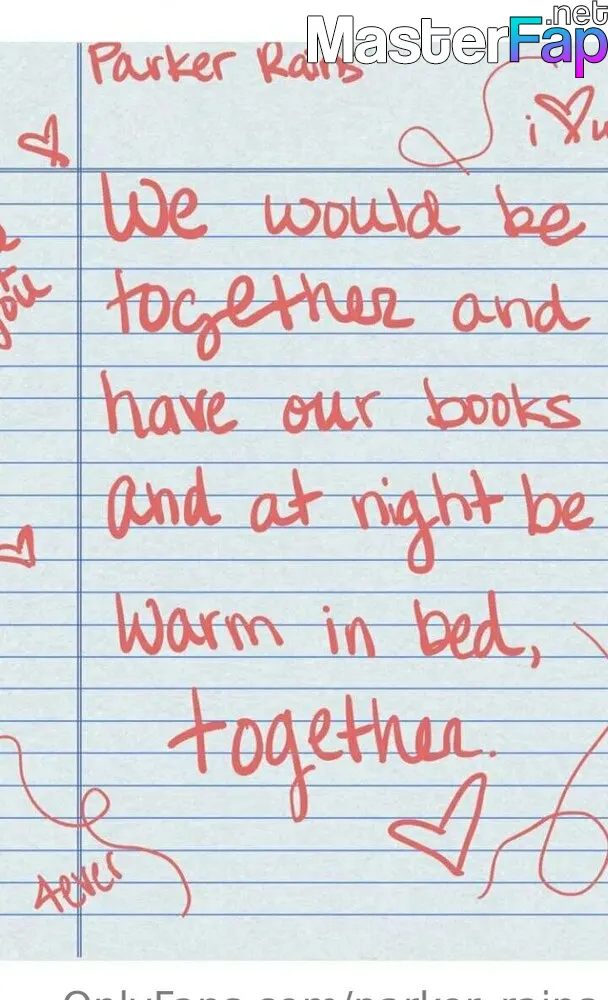 .net
MasterFap
Parker Rains
i
We would be
you
together and
have our books
and at night be
warm in bed,
together.
4ever
OnlyFans.com/parker_rains